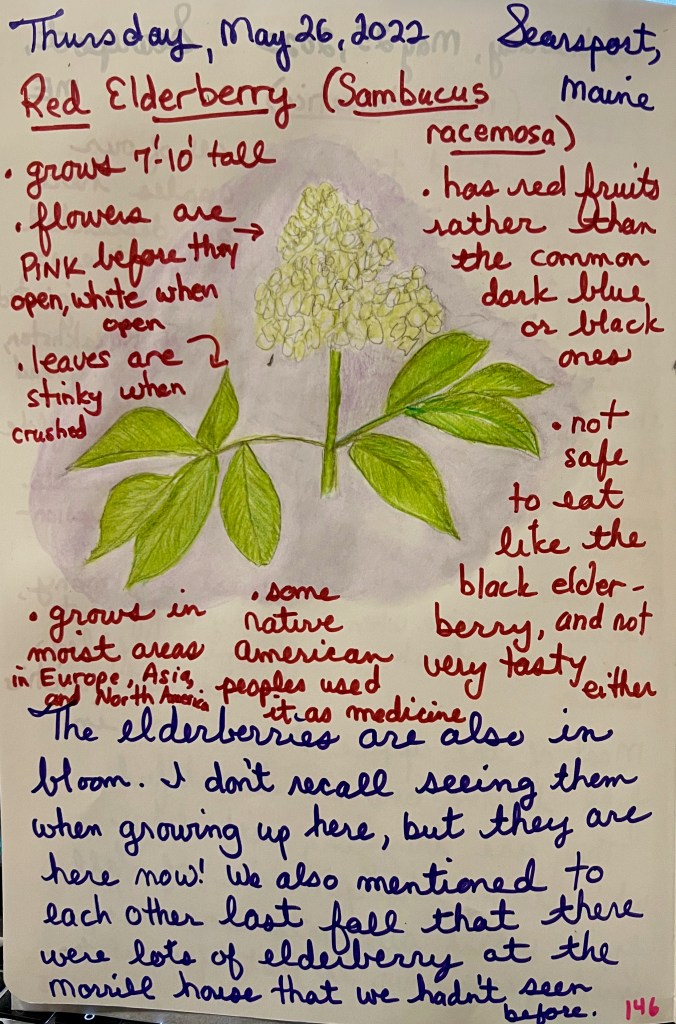 Thursday, May 26, 2022 Searspost,
Maine
Red Elderberry (Sambucus
racemosa)
• grows 7'-10' tall
• flowers are
PINK before they
open, white when
open
• leaves are
stinky when
crushed
• has red fruits
rather than
the common
dark blue
or black
ones
• not
safe
to eat
like the
black elder-
berry, and not
very tasty
either
• grows in
moist areas
in Europe, Asia,
and North America
• some
native
american
peoples used
it as medicine
The elderberries are also in
bloom. I don't recall seeing them
when growing up here, but they are
here now! We also mentioned to
each other last fall that there
were lots of elderberry at the
morrill house that we hadn't seen
before.
146